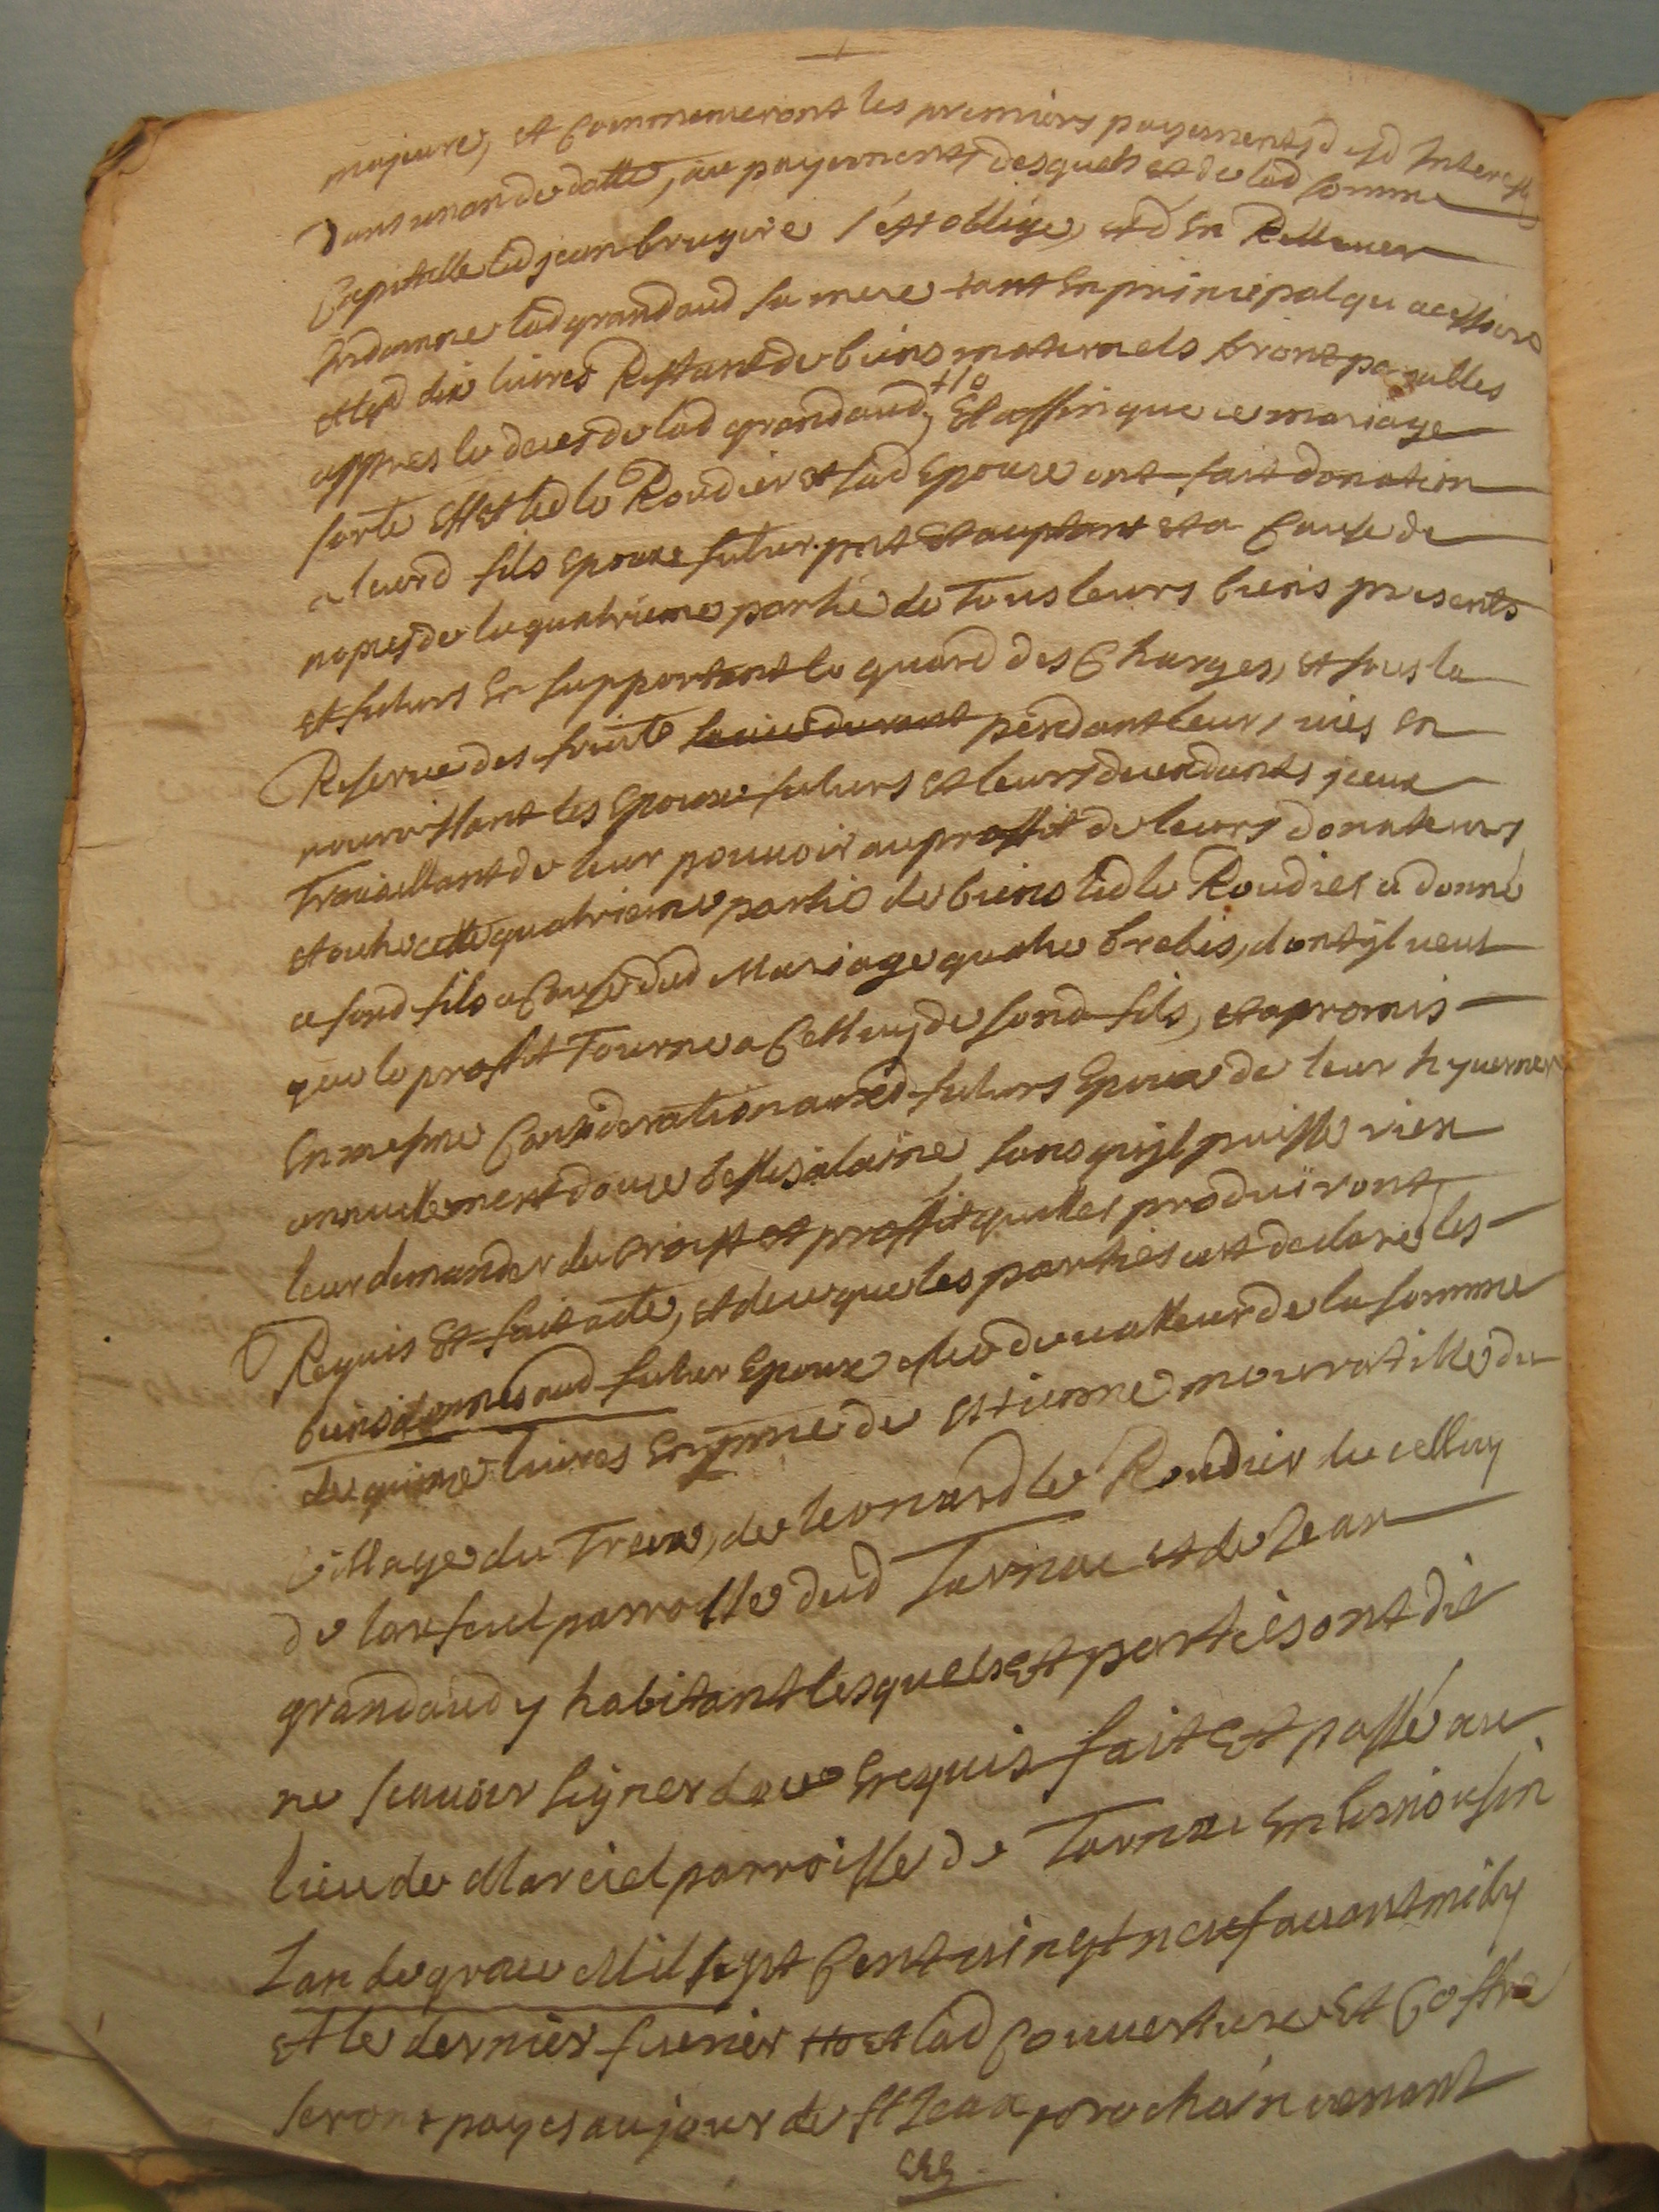 majeure, et Commenceront les premiers payements d'esd Interests
dans un an de datte, au payement desquels et de lad somme
Capitalle led jean brugire s'est obligé, et d En Rellever
Indamne lad grandaud sa mere tant En principal qu acessoire
et lesd dix livres Restant de biens maternels seront payables
appres le deces de lad grandaud, +10 Et affin que ce mariage
sorte effet led le Roudier et sad Epouse ont fait donation
a leurd fils Epoux futur pnt Et aceptant et a Cause de
nopces de la quatrieme partie de Tous leurs biens presents
et futurs En supportant le quard des Charges, et sous la
Reserve des fruits pendant leurs vies En
nourrissant les Epoux futurs et leurs decendants jceux
Travaillant de leur pouvoir au proffit de leurs donateurs
et outre cette quatrieme partie de biens led le Roudier a donné
a sond fils a Cause dud Mariage quatre brebis, dont ÿl veut
que le proffit Tourne a Celluy de sond fils, et a promis
En mesme Consideration auxd futurs Epoux de leur hyverner
annuellement douze bestes a laine sans qu'ÿl puisse rien
leur demander du croist et proffit qu'elles produiront
Requis Et fait acte, et de ce que les parties ont declaré les
biens donnés aud futur Epoux estre de valleur de la somme
de quinze livres En pnce de Estienne mouratille du
village du Treux, de leonard le Roudier du celluy
de parroisse dud Tarnac et de Jean
grandaud y habitant lesquels Et parties ont dit
ne scavoir signer de ce Enquis fait Et passé au
lieu de Marciel parroisse de Tarnac En limousin
Lan de grace Mil sept Cent vingt neuf avant midy
et le dernier fevrier +10 et lad Couverture Et Coffre
seront payes au jour de St Jean prochain venant